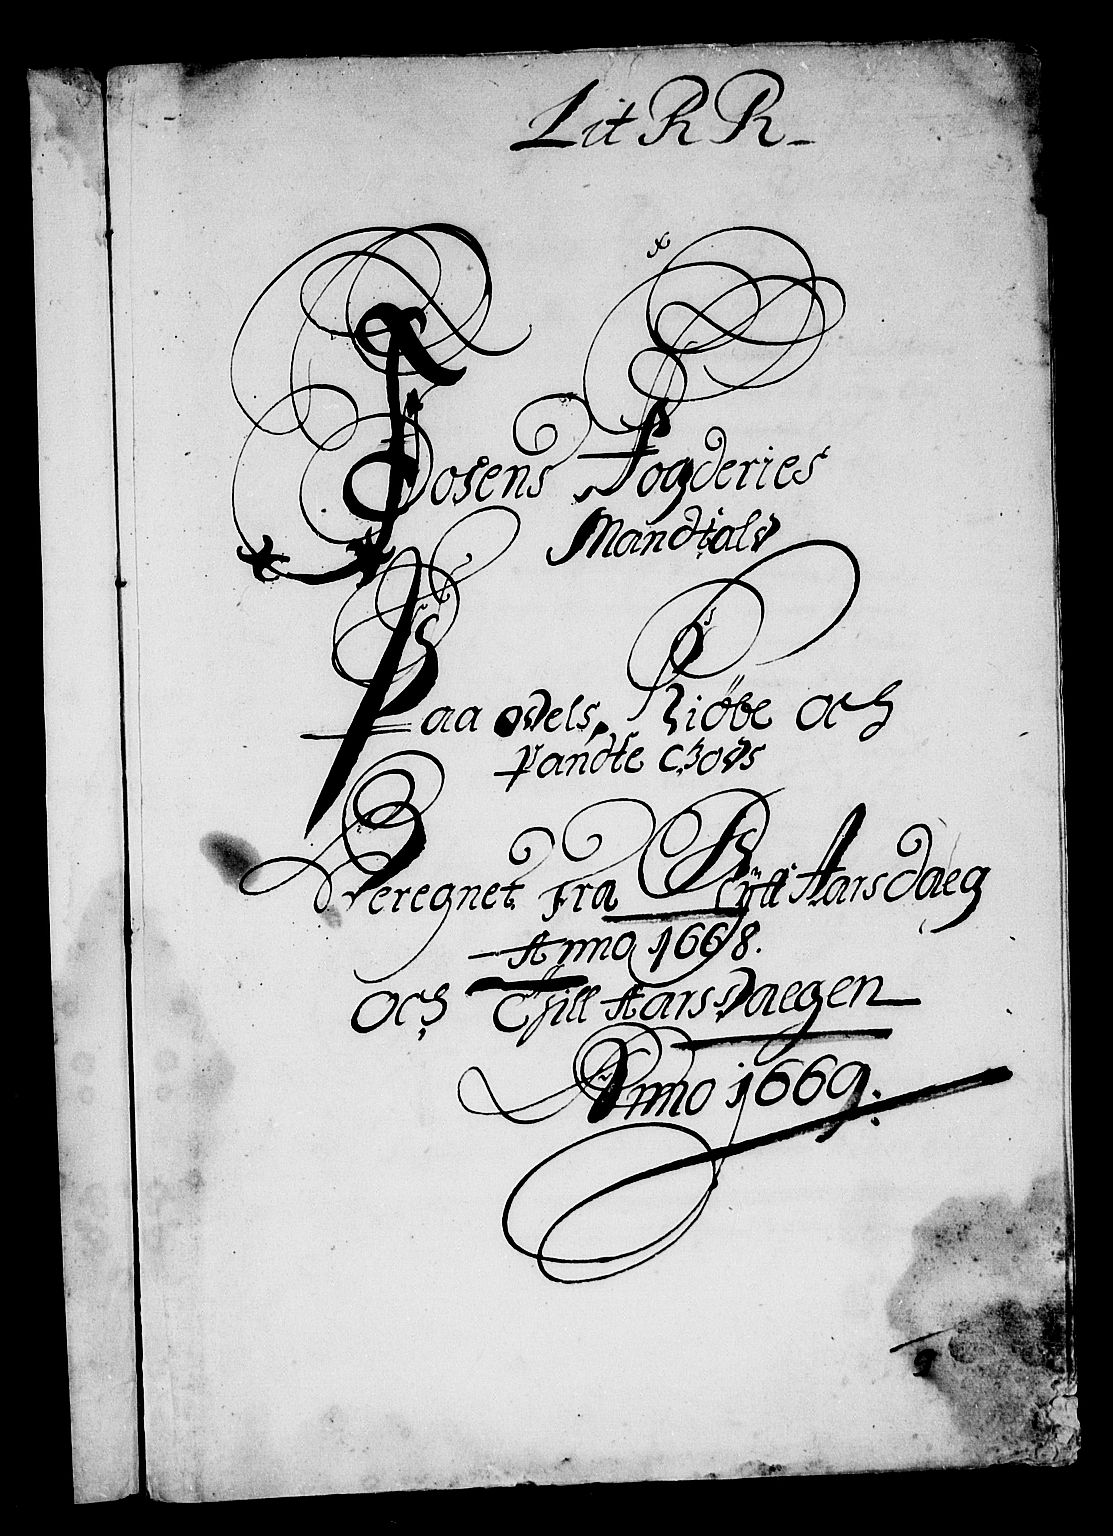 Lit R R
Fosens Fogderies
Mandtals
Paa odels, Kiøbe och
Pandte Gods
Beregnet Fra Nÿtt Aars daeg
Anno 1668.
och Thill Aarsdaegen
Anno 1669.
9